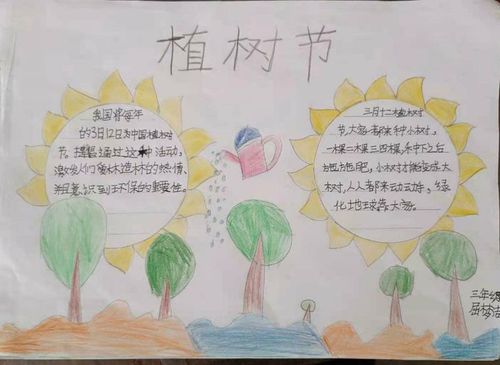 植树节
我国将每年
的3月12日为中国植树
节。提倡通过这种活动,
激发人们爱林造林的热情、
意识到环保的重要性。
三月十二植树
节,大家都来种小树,
一棵二棵三四棵,种下之后
把施肥,小树才能变成大
树,人人都来动动手,绿
化地球靠大家。
三年级
屈梦洁